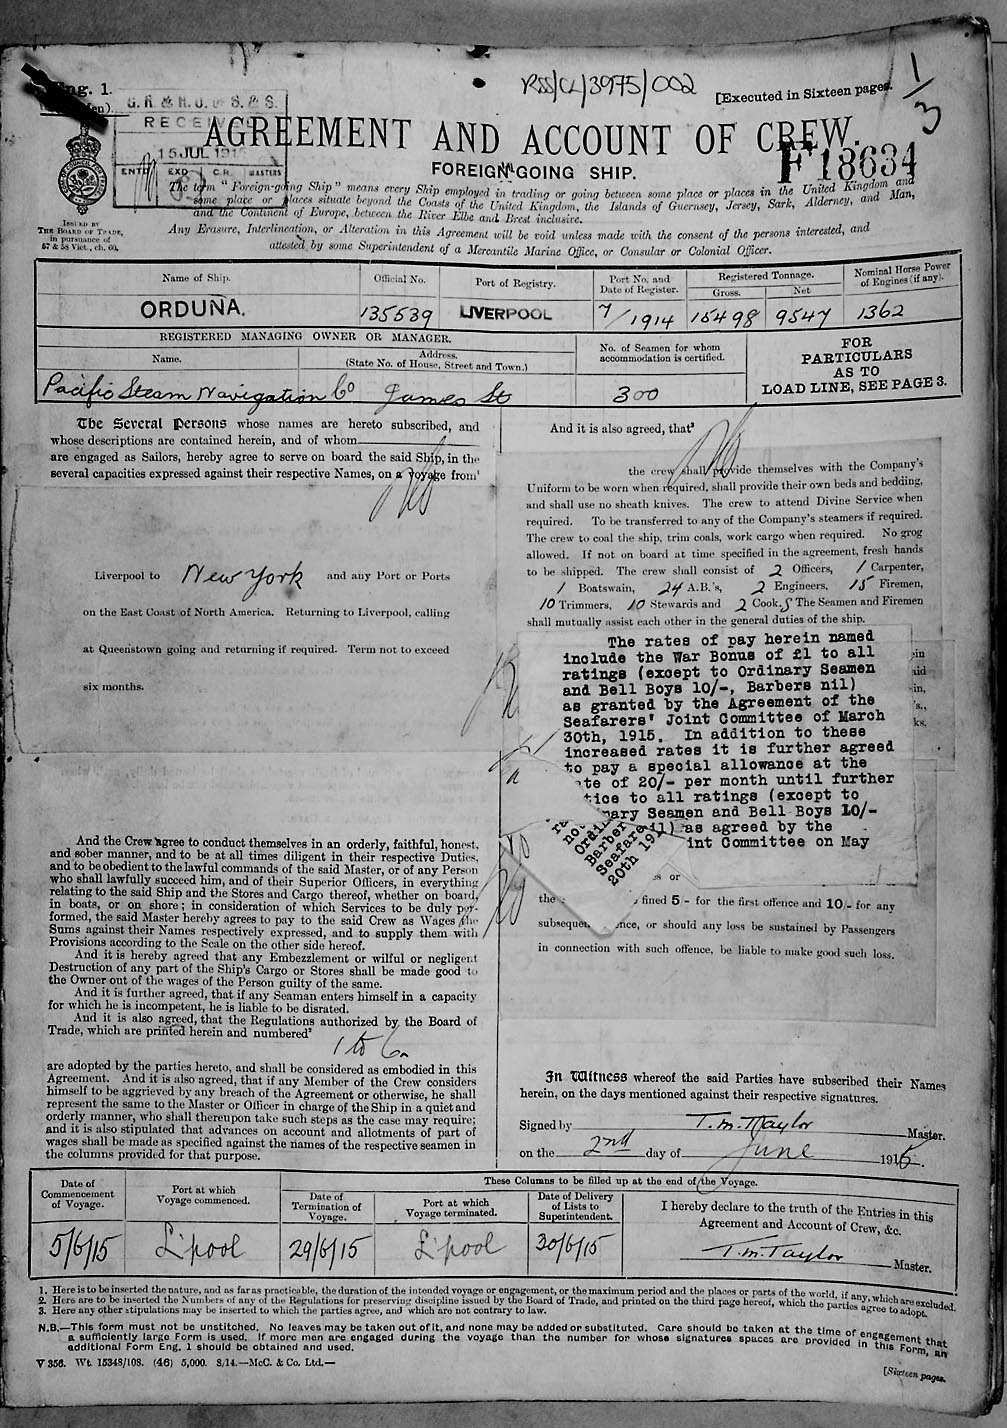 RSS/CL/3975/002
Eng. 1.
[Executed in Sixteen pages.
1/3
G. R. & R. O. of S. & S.
RECEIVED
15 JUL 191
ENTD EXD C.R. MASTERS
AGREEMENT AND ACCOUNT OF CREW.
F18634
FOREIGN-GOING SHIP.
The term "Foreign-going Ship" means every Ship employed in trading or going between some place or places in the United Kingdom and
some place or places situate beyond the Coasts of the United Kingdom, the Islands of Guernsey, Jersey, Sark, Alderney, and Man,
and the Continent of Europe, between the River Elbe and Brest inclusive.
ISSUED BY
THE BOARD OF TRADE,
in pursuance of
57 & 58 Vict., ch. 60.
Any Erasure, Interlineation, or Alteration in this Agreement will be void unless made with the consent of the persons interested, and
attested by some Superintendent of a Mercantile Marine Office, or Consular or Colonial Officer.
Name of Ship. Official No. Port of Registry. Port No. and Date of Register. Registered Tonnage. Gross. Net Nominal Horse Power of Engines (if any).
ORDUÑA. 135539 LIVERPOOL 7/1914 15498 9547 1362
REGISTERED MANAGING OWNER OR MANAGER.
Name. Address. (State No. of House, Street and Town.)
No. of Seamen for whom accommodation is certified.
FOR
PARTICULARS
AS TO
LOAD LINE, SEE PAGE 3.
Pacific Steam Navigation Co James St 300
The Several Persons whose names are hereto subscribed, and
whose descriptions are contained herein, and of whom
are engaged as Sailors, hereby agree to serve on board the said Ship, in the
several capacities expressed against their respective Names, on a Voyage from¹
Liverpool to New York and any Port or Ports
on the East Coast of North America. Returning to Liverpool, calling
at Queenstown going and returning if required. Term not to exceed
six months.
And the Crew agree to conduct themselves in an orderly, faithful, honest,
and sober manner, and to be at all times diligent in their respective Duties,
and to be obedient to the lawful commands of the said Master, or of any Person
who shall lawfully succeed him, and of their Superior Officers, in everything
relating to the said Ship and the Stores and Cargo thereof, whether on board,
in boats, or on shore; in consideration of which Services to be duly per-
formed, the said Master hereby agrees to pay to the said Crew as Wages the
Sums against their Names respectively expressed, and to supply them with
Provisions according to the Scale on the other side hereof.
And it is hereby agreed that any Embezzlement or wilful or negligent
Destruction of any part of the Ship's Cargo or Stores shall be made good to
the Owner out of the wages of the Person guilty of the same.
And it is further agreed, that if any Seaman enters himself in a capacity
for which he is incompetent, he is liable to be disrated.
And it is also agreed, that the Regulations authorized by the Board of
Trade, which are printed herein and numbered²
1 to 6
are adopted by the parties hereto, and shall be considered as embodied in this
Agreement. And it is also agreed, that if any Member of the Crew considers
himself to be aggrieved by any breach of the Agreement or otherwise, he shall
represent the same to the Master or Officer in charge of the Ship in a quiet and
orderly manner, who shall thereupon take such steps as the case may require;
and it is also stipulated that advances on account and allotments of part of
wages shall be made as specified against the names of the respective seamen in
the columns provided for that purpose.
And it is also agreed, that³
the crew shall provide themselves with the Company's
Uniform to be worn when required, shall provide their own beds and bedding,
and shall use no sheath knives. The crew to attend Divine Service when
required. To be transferred to any of the Company's steamers if required.
The crew to coal the ship, trim coals, work cargo when required. No grog
allowed. If not on board at time specified in the agreement, fresh hands
to be shipped. The crew shall consist of 2 Officers, 1 Carpenter,
1 Boatswain, 24 A.B.'s, 2 Engineers, 15 Firemen,
10 Trimmers, 10 Stewards and 2 Cooks The Seamen and Firemen
shall mutually assist each other in the general duties of the ship.
The rates of pay herein named
include the War Bonus of £1 to all
ratings (except to Ordinary Seamen
and Bell Boys 10/-, Barbers nil)
as granted by the Agreement of the
Seafarers' Joint Committee of March
30th, 1915. In addition to these
increased rates it is further agreed
to pay a special allowance at the
te of 20/- per month until further
tice to all ratings (except to
nary Seamen and Bell Boys 10/-
il) as agreed by the
int Committee on May
Ordin
Barber
Seafare
20th 191
or
the fined 5/- for the first offence and 10/- for any
subsequen nce, or should any loss be sustained by Passengers
in connection with such offence, be liable to make good such loss.
In Witness whereof the said Parties have subscribed their Names
herein, on the days mentioned against their respective signatures.
Signed by T. M. Taylor Master.
on the 2nd day of June 1915.
Date of Commencement of Voyage. Port at which Voyage commenced. These Columns to be filled up at the end of the Voyage.
Date of Termination of Voyage. Port at which Voyage terminated. Date of Delivery of Lists to Superintendent. I hereby declare to the truth of the Entries in this
Agreement and Account of Crew, &c.
5/6/15 L'pool 29/6/15 L'pool 30/6/15 T. M. Taylor Master.
1. Here is to be inserted the nature, and as far as practicable, the duration of the intended voyage or engagement, or the maximum period and the places or parts of the world, if any, which are excluded.
2. Here are to be inserted the Numbers of any of the Regulations for preserving discipline issued by the Board of Trade, and printed on the third page hereof, which the parties agree to adopt.
3. Here any other stipulations may be inserted to which the parties agree, and which are not contrary to law.
N.B.—This form must not be unstitched. No leaves may be taken out of it, and none may be added or substituted. Care should be taken at the time of engagement that
a sufficiently large Form is used. If more men are engaged during the voyage than the number for whose signatures spaces are provided in this Form, an
additional Form Eng. 1 should be obtained and used.
V 356. Wt. 15348/108. (46) 5,000. 8/14.—McC. & Co. Ltd.—
[Sixteen pages.